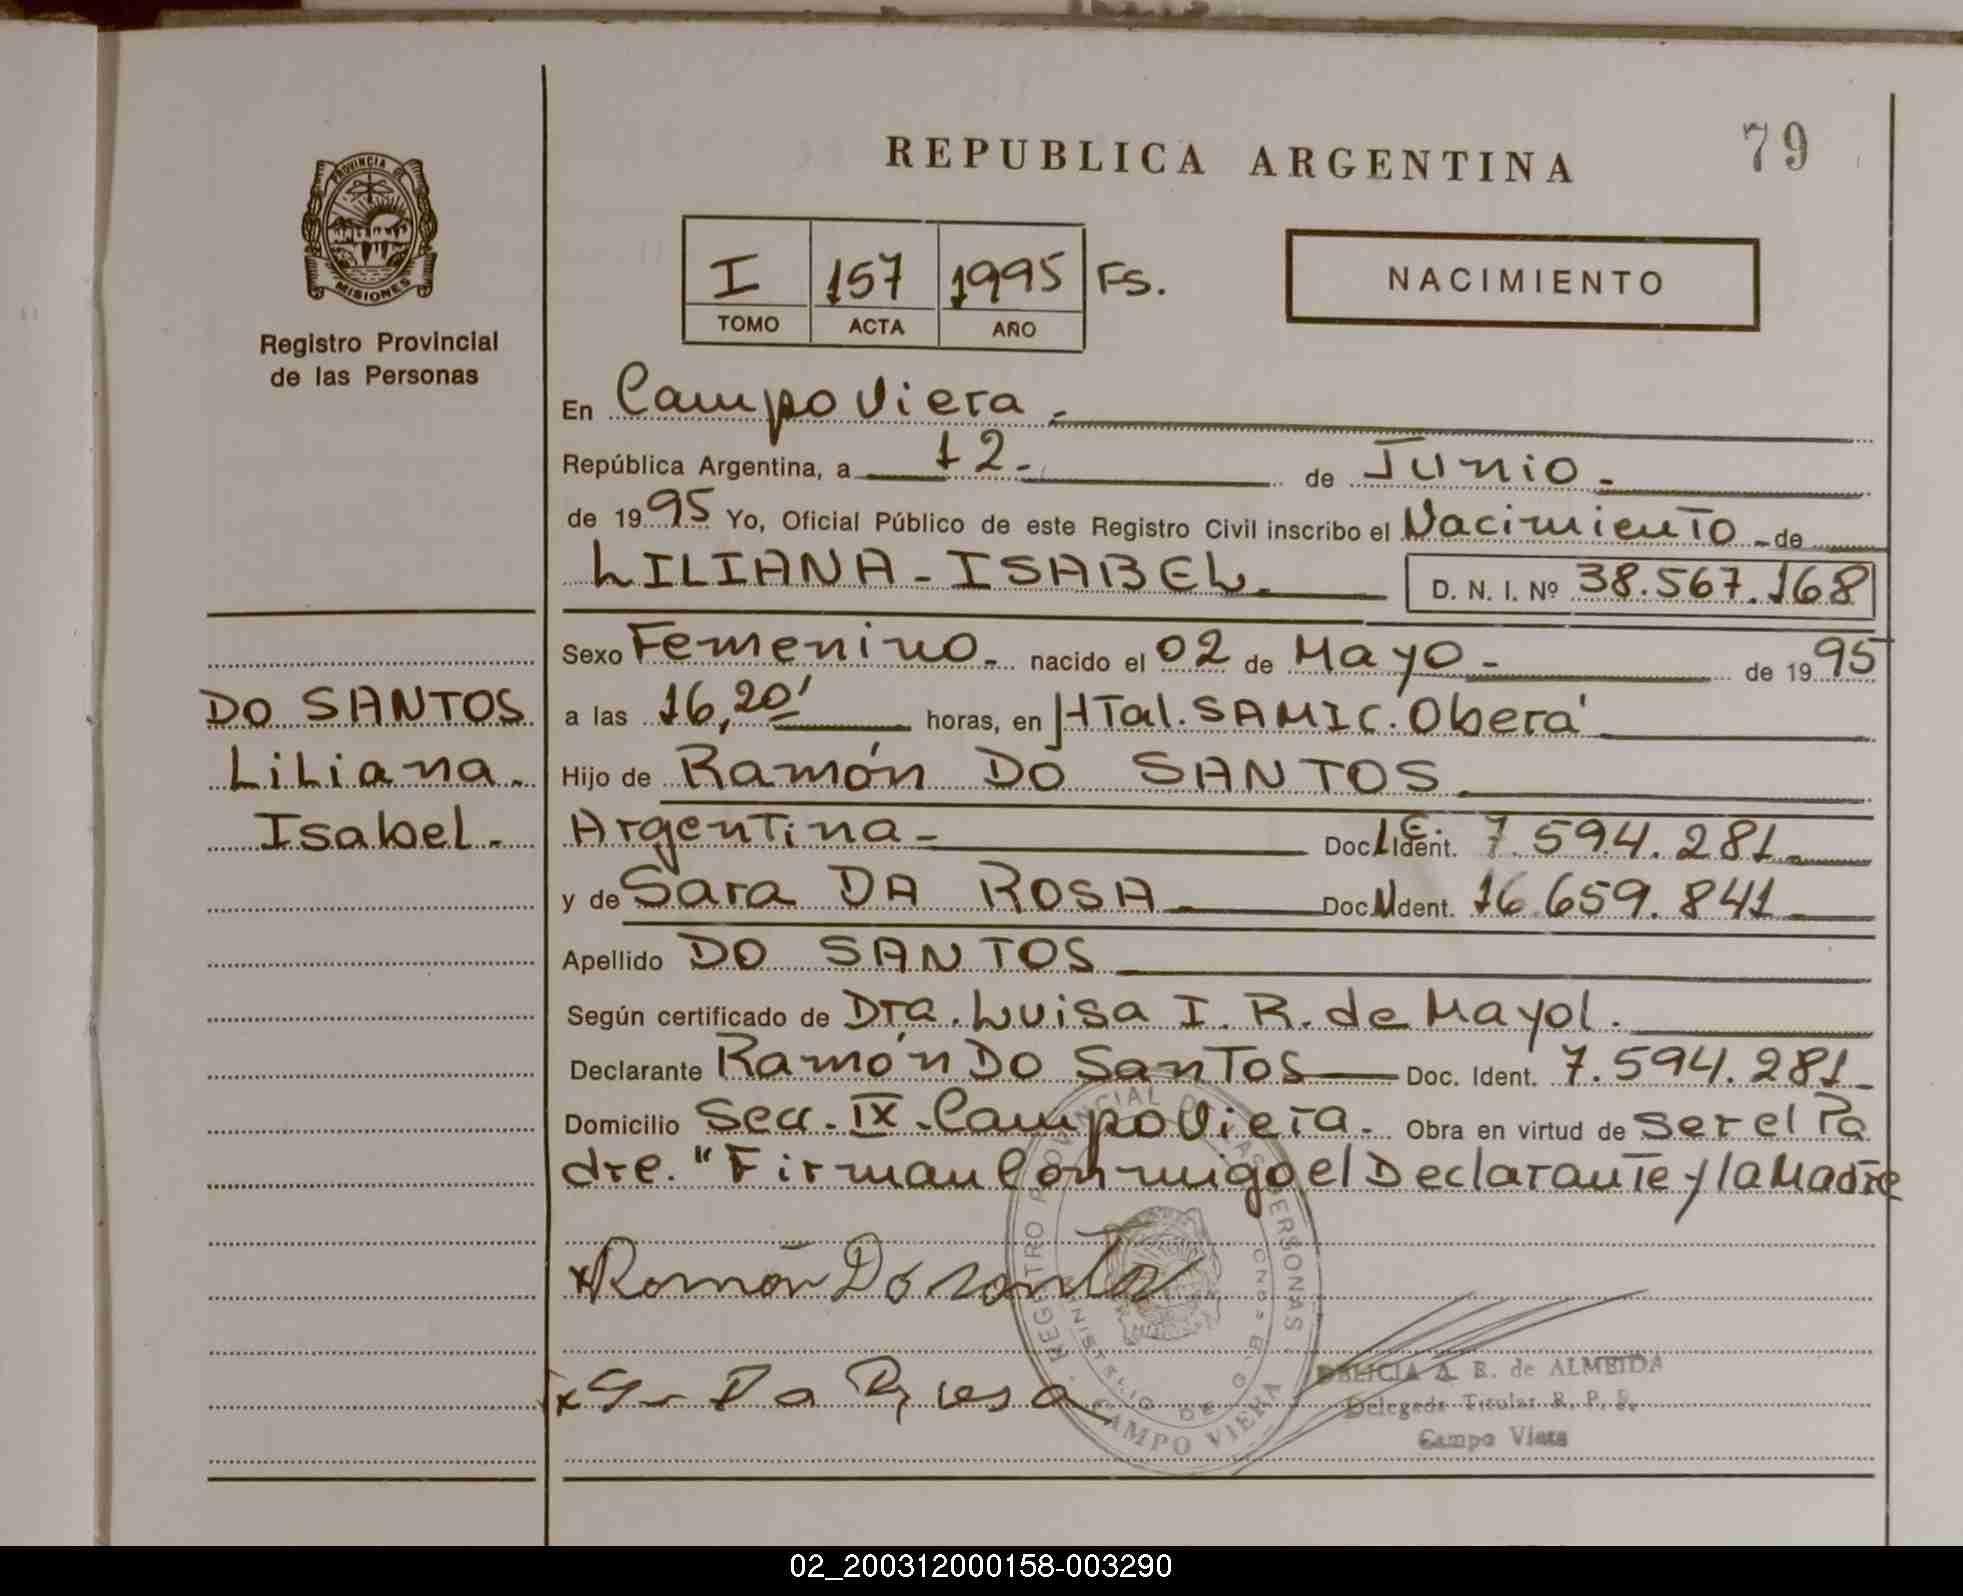 79
REPUBLICA ARGENTINA
PROVINCIA DE
MISIONES
Registro Provincial
de las Personas
I 157 1995 Fs.
TOMO ACTA AÑO
NACIMIENTO
En Campo Viera.-
República Argentina, a 12.- de Junio.-
de 1995 Yo, Oficial Público de este Registro Civil inscribo el Nacimiento - de
LILIANA - ISABEL.- D. N. I. Nº 38.567.168
Sexo Femenino.- nacido el 02 de Mayo.- de 1995
a las 16,20' horas, en HTal. SAMIC. Oberá
Hijo de Ramón DO SANTOS.
Argentina - Doc. Ident. L.E. 7.594.281.-
y de Sara DA ROSA.- Doc. Ident. 16.659.841.-
Apellido DO SANTOS
Según certificado de Dra. Luisa I. R. de Mayol.
Declarante Ramón Do Santos Doc. Ident. 7.594.281-
Domicilio Secc. IX - Campo Viera.- Obra en virtud de ser el Pa
dre. "Firman Conmigo el Declarante y la Madre
DO SANTOS
Liliana.
Isabel.-
x Ramón Do santos
x Da Rosa
REGISTRO PROVINCIAL DE LAS PERSONAS
MINISTERIO DE
CAMPO VIERA
DELICIA A. R. de ALMEIDA
Delegada Titular R. P. P.
Campo Viera
02_200312000158-003290